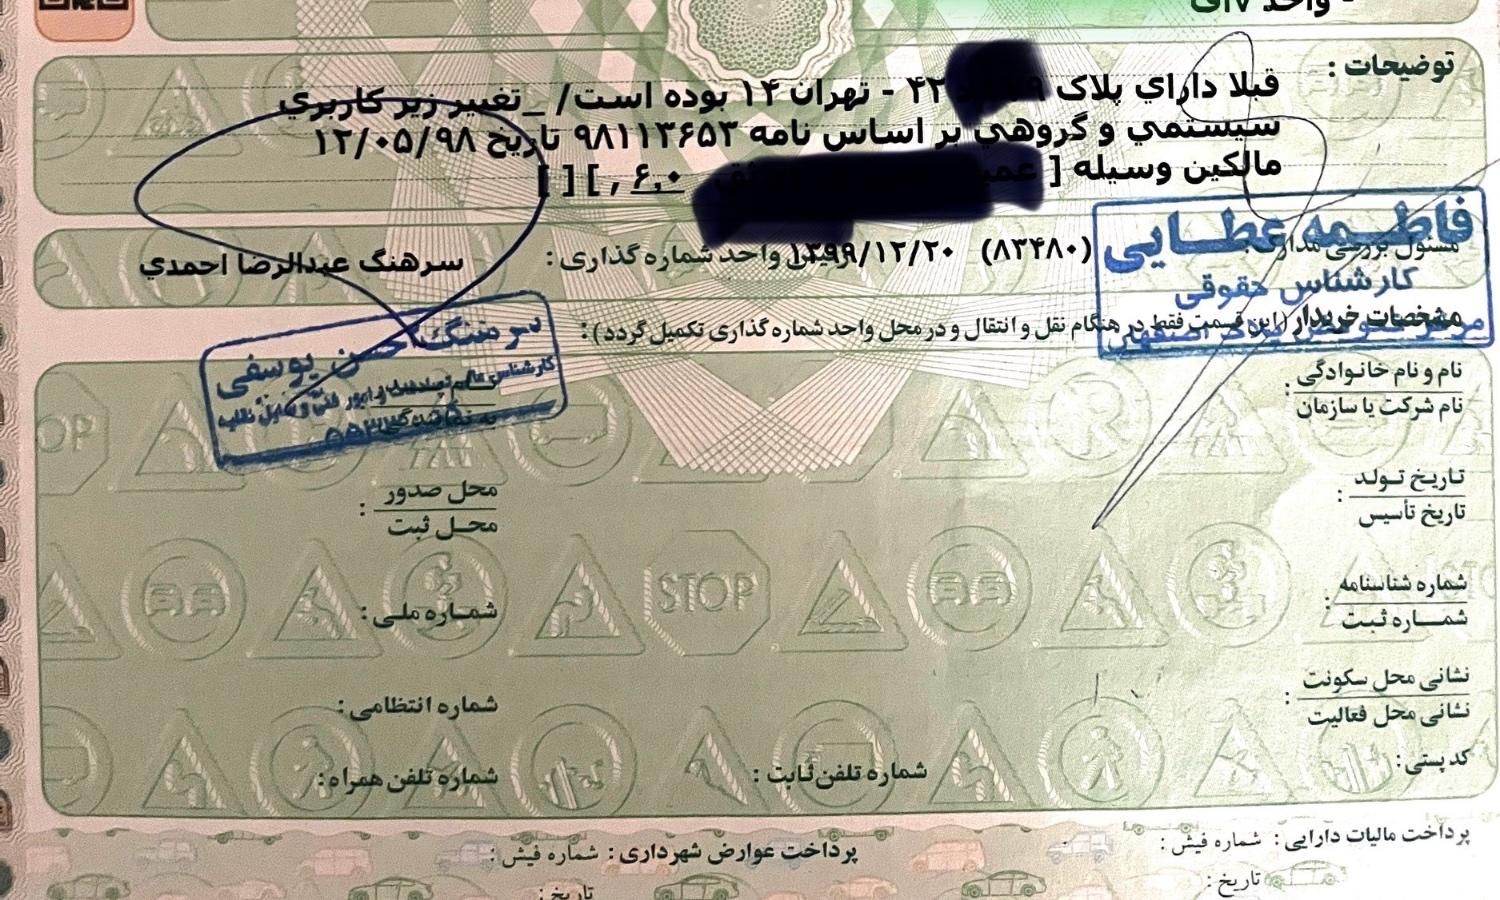 - واحد
توضیحات :
قبلا داراي پلاک ۴۲ - تهران ۱۴ بوده است/ _تغییر زیر کاربري
سیستمي و گروهي بر اساس نامه ۹۸۱۱۳۶۵۳ تاریخ ۱۲/۰۵/۹۸
مالکین وسیله [ ۶,۰ , ] [ ]
فاطمه عطایی
مسئول بررسی مدارک
(۸۲۴۸۰) ۱۳۹۹/۱۲/۲۰
رئیس واحد شماره گذاری :
سرهنگ عبدالرضا احمدي
کارشناس حقوقی
مشخصات خریدار (این قسمت فقط در هنگام نقل و انتقال و در محل واحد شماره گذاری تکمیل گردد) :
سرهنگ حسن یوسفی
نام و نام خانوادگی
نام شرکت یا سازمان :
تاریخ تولد
تاریخ تأسیس :
محل صدور
محل ثبت :
شماره شناسنامه
شماره ثبت :
شماره ملی :
نشانی محل سکونت
نشانی محل فعالیت :
شماره انتظامی :
کد پستی :
شماره تلفن ثابت :
شماره تلفن همراه :
پرداخت مالیات دارایی : شماره فیش :
پرداخت عوارض شهرداری : شماره فیش :
تاریخ :
تاریخ :
STOP